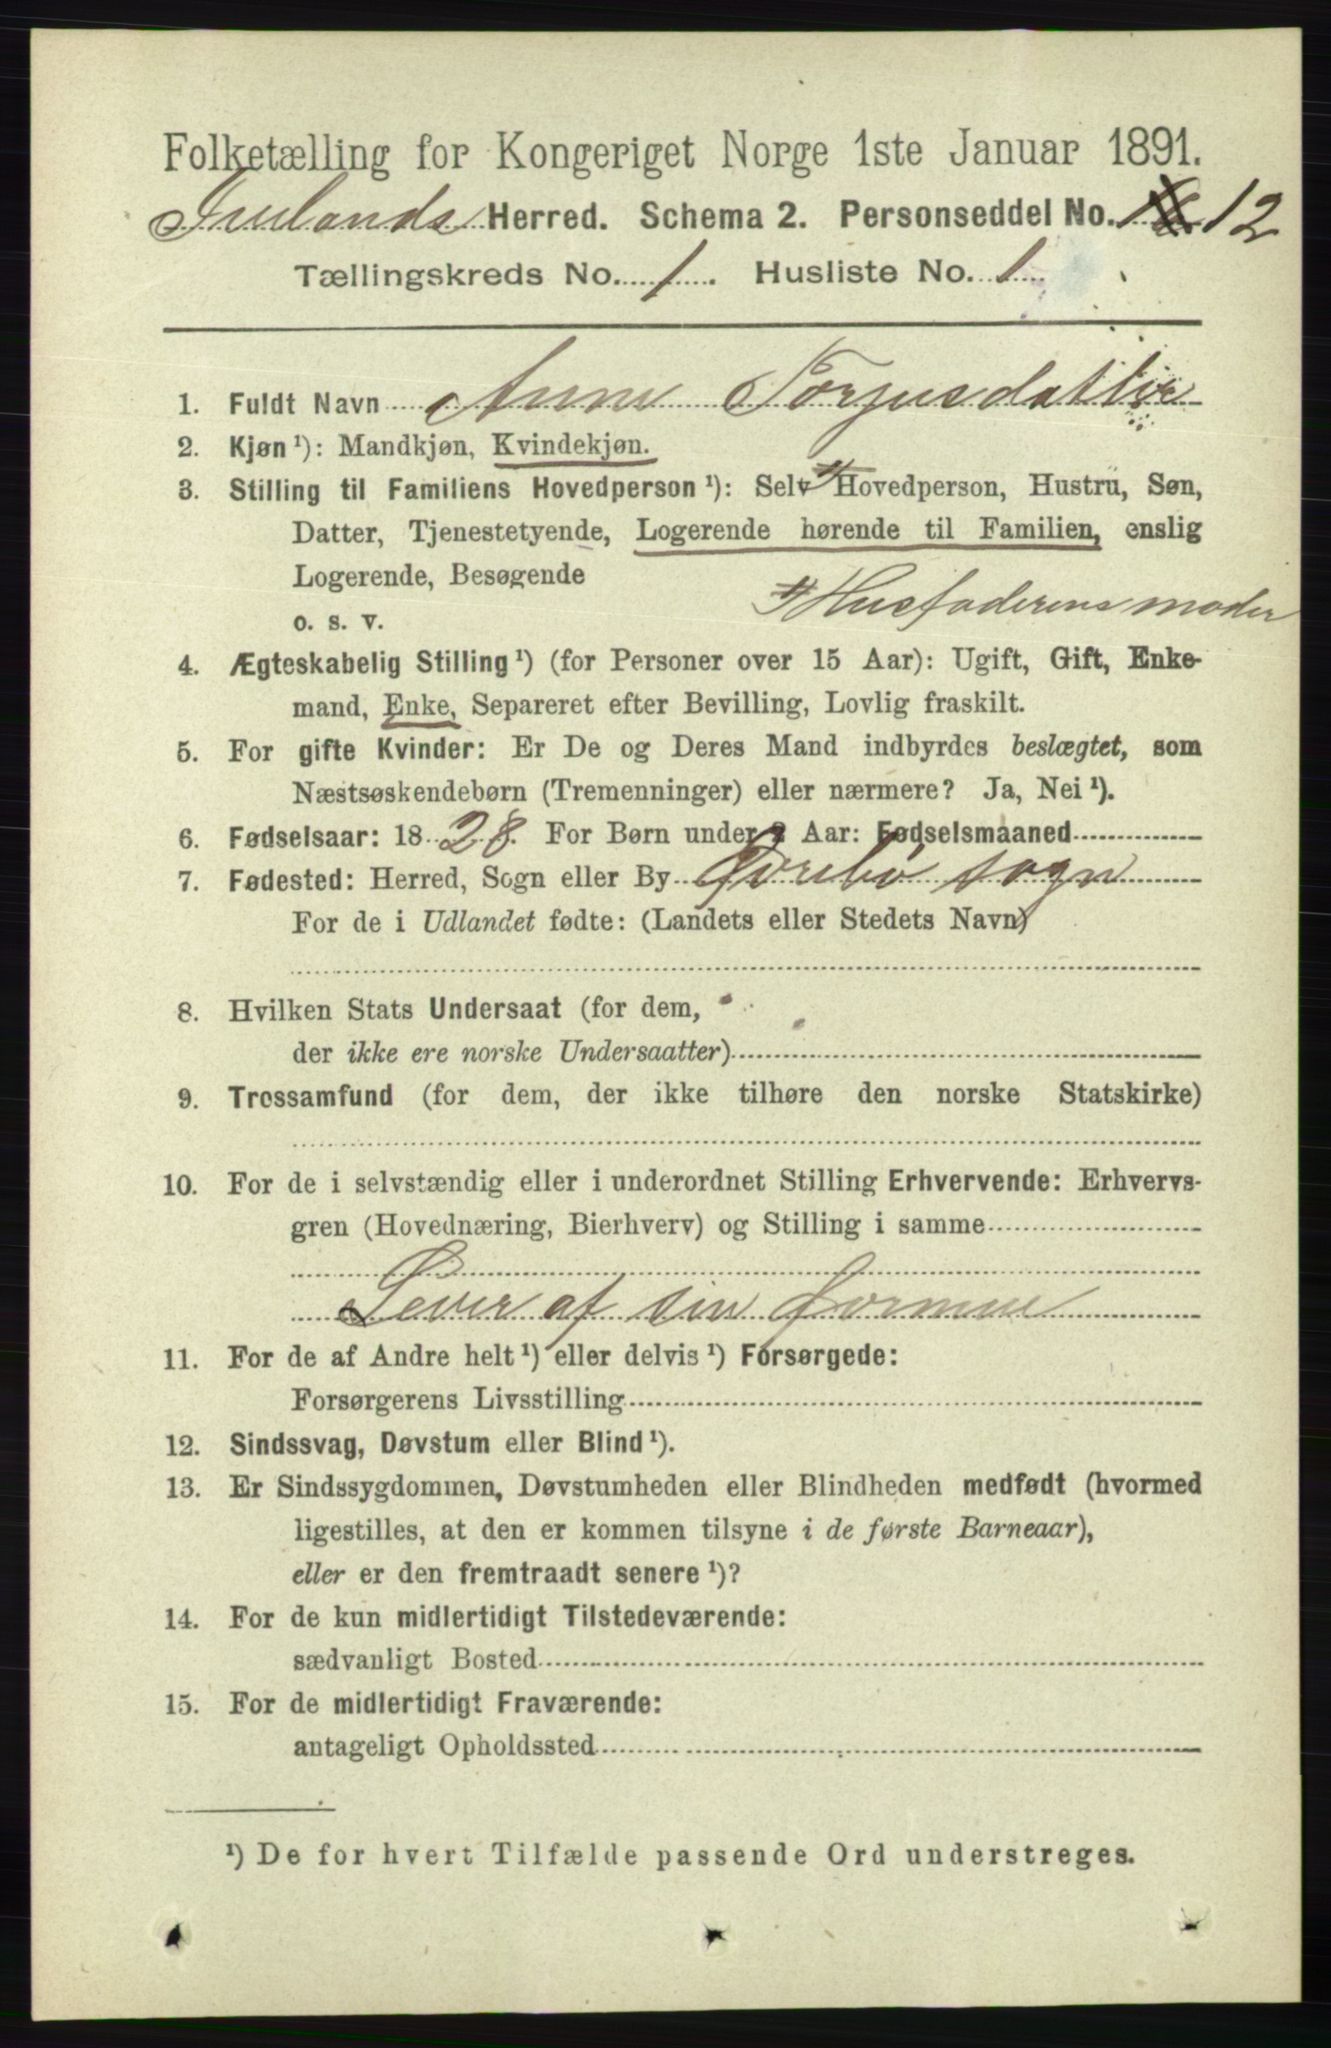 Folketælling for Kongeriget Norge 1ste Januar 1891.
Iveslands Herred. Schema 2. Personseddel No. 12
Tællingskreds No. 1. Husliste No. 1
1. Fuldt Navn Anne Torjusdatter
2. Kjøn ¹): Mandkjøn, Kvindekjøn.
3. Stilling til Familiens Hovedperson ¹): Selv Hovedperson, Hustru, Søn,
Datter, Tjenestetyende, Logerende hørende til Familien, enslig
Logerende, Besøgende
Husfaderens moder
o. s. v.
4. Ægteskabelig Stilling ¹) (for Personer over 15 Aar): Ugift, Gift, Enke-
mand, Enke, Separeret efter Bevilling, Lovlig fraskilt.
5. For gifte Kvinder: Er De og Deres Mand indbyrdes beslægtet, som
Næstsøskendebørn (Tremenninger) eller nærmere? Ja, Nei ¹).
6. Fødselsaar: 1828. For Børn under 2 Aar: Fødselsmaaned
7. Fødested: Herred, Sogn eller By sogn
For de i Udlandet fødte: (Landets eller Stedets Navn)
8. Hvilken Stats Undersaat (for dem,
der ikke ere norske Undersaatter)
9. Trossamfund (for dem, der ikke tilhøre den norske Statskirke)
10. For de i selvstændig eller i underordnet Stilling Erhvervende: Erhvervs-
gren (Hovednæring, Bierhverv) og Stilling i samme
Lever af sin formue
11. For de af Andre helt ¹) eller delvis ¹) Forsørgede:
Forsørgerens Livsstilling
12. Sindssvag, Døvstum eller Blind ¹).
13. Er Sindssygdommen, Døvstumheden eller Blindheden medfødt (hvormed
ligestilles, at den er kommen tilsyne i de første Barneaar),
eller er den fremtraadt senere ¹)?
14. For de kun midlertidigt Tilstedeværende:
sædvanligt Bosted
15. For de midlertidigt Fraværende:
antageligt Opholdssted
¹) De for hvert Tilfælde passende Ord understreges.